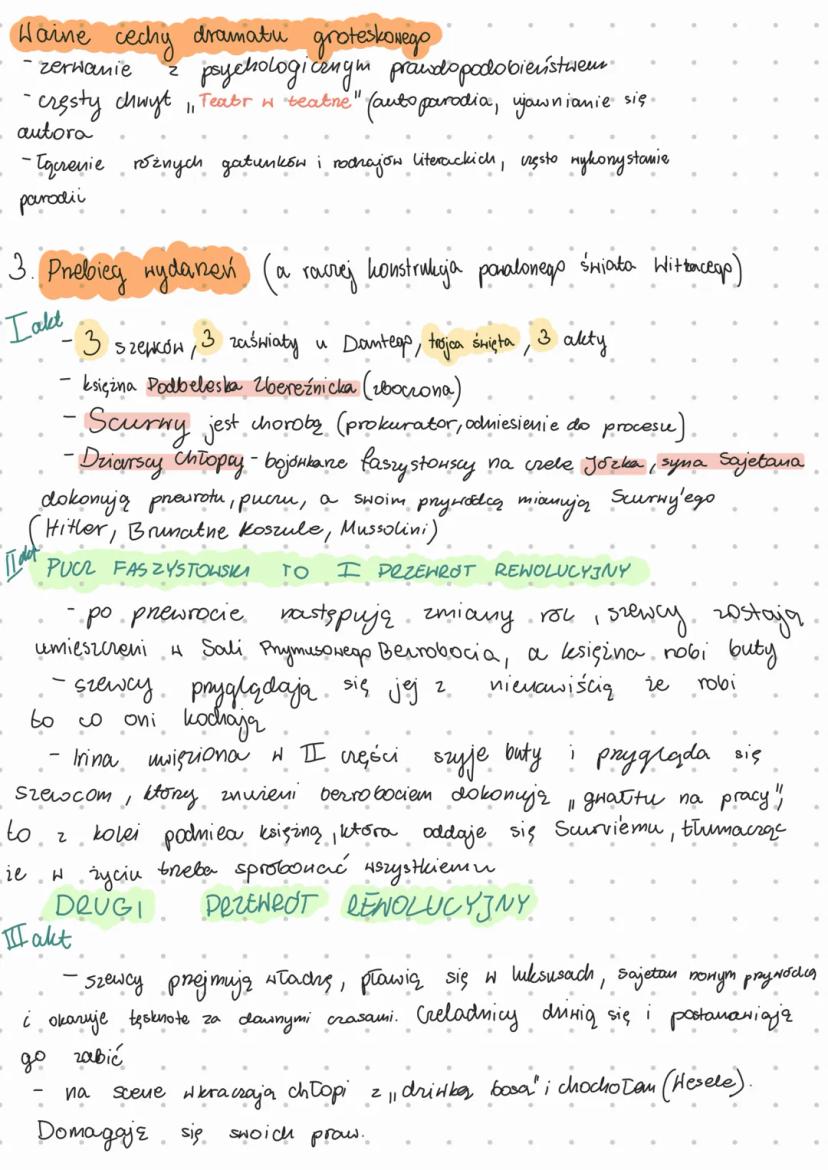 Ważne cechy dramatu groteskowego
- zerwanie z psychologicznym prawdopodobieństwem
- częsty chwyt „Teatr w teatrze" (autoparodia, ujawnianie się
autora
- Łączenie różnych gatunków i rodzajów literackich, często wykorzystanie
parodii
3. Przebieg wydarzeń (a raczej konstrukcja powalonego świata Wittacego)
I akt
- 3 szewków, 3 zaświaty u Dantego, trójca święta, 3 akty
- księżna Podbeleska Zbereźnicka (zboczona)
- Scurwy jest chorobą (prokurator, odniesienie do procesu)
- Dziarscy Chłopcy - bojówkarze faszystowscy na czele Józka, syna Sajetana
dokonują przewrotu, puczu, a swoim przywódcą mianują Scurwy'ego
(Hitler, Brunatne Koszule, Mussolini)
II akt
PUCZ FASZYSTOWSKI TO I PRZEWRÓT REWOLUCYJNY
- po przewrocie następują zmiany ról, szewcy zostają
umieszczeni w Sali Przymusowego Bezrobocia, a księżna robi buty
- szewcy przyglądają się jej z nienawiścią że robi
to co oni kochają
- Irina uwięziona w II części szyje buty i przygląda się
szewcom, którzy znużeni bezrobociem dokonują „gwałtu na pracy",
to z kolei podnieca księżną, która oddaje się Scurviemu, tłumacząc
że w życiu trzeba spróbować wszystkiemu
DRUGI PRZEWRÓT REWOLUCYJNY
III akt
- szewcy przejmują władzę, pławią się w luksusach, Sajetan nowym przywódcą
i okazuje tęsknote za dawnymi czasami. Czeladnicy dziwią się i postanawiają
go zabić
- na scene wkraczają chłopi z „dziwką bosą" i chochołem (Wesele).
Domagają się swoich praw.